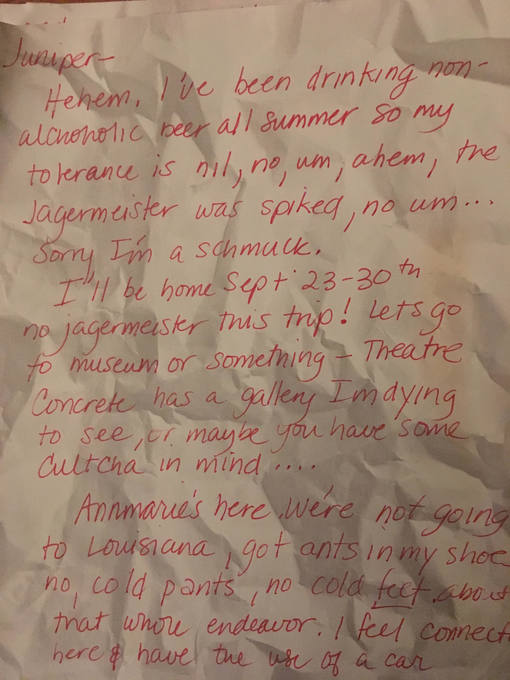 Juniper-
Hehem. I've been drinking non-
alchoholic beer all summer so my
tolerance is nil, no, um, ahem, the
Jagermeister was spiked, no um...
Sorry I'm a schmuck.
I'll be home Sept 23-30th
no jagermeister this trip! Lets go
to museum or something - Theatre
Concrete has a gallery Im dying
to see, or maybe you have some
Cultcha in mind....
Annmarie's here. We're not going
to Louisiana, got ants in my shoe
no, cold pants, no cold feet about
that whole endeavor. I feel connect
here & have the use of a car